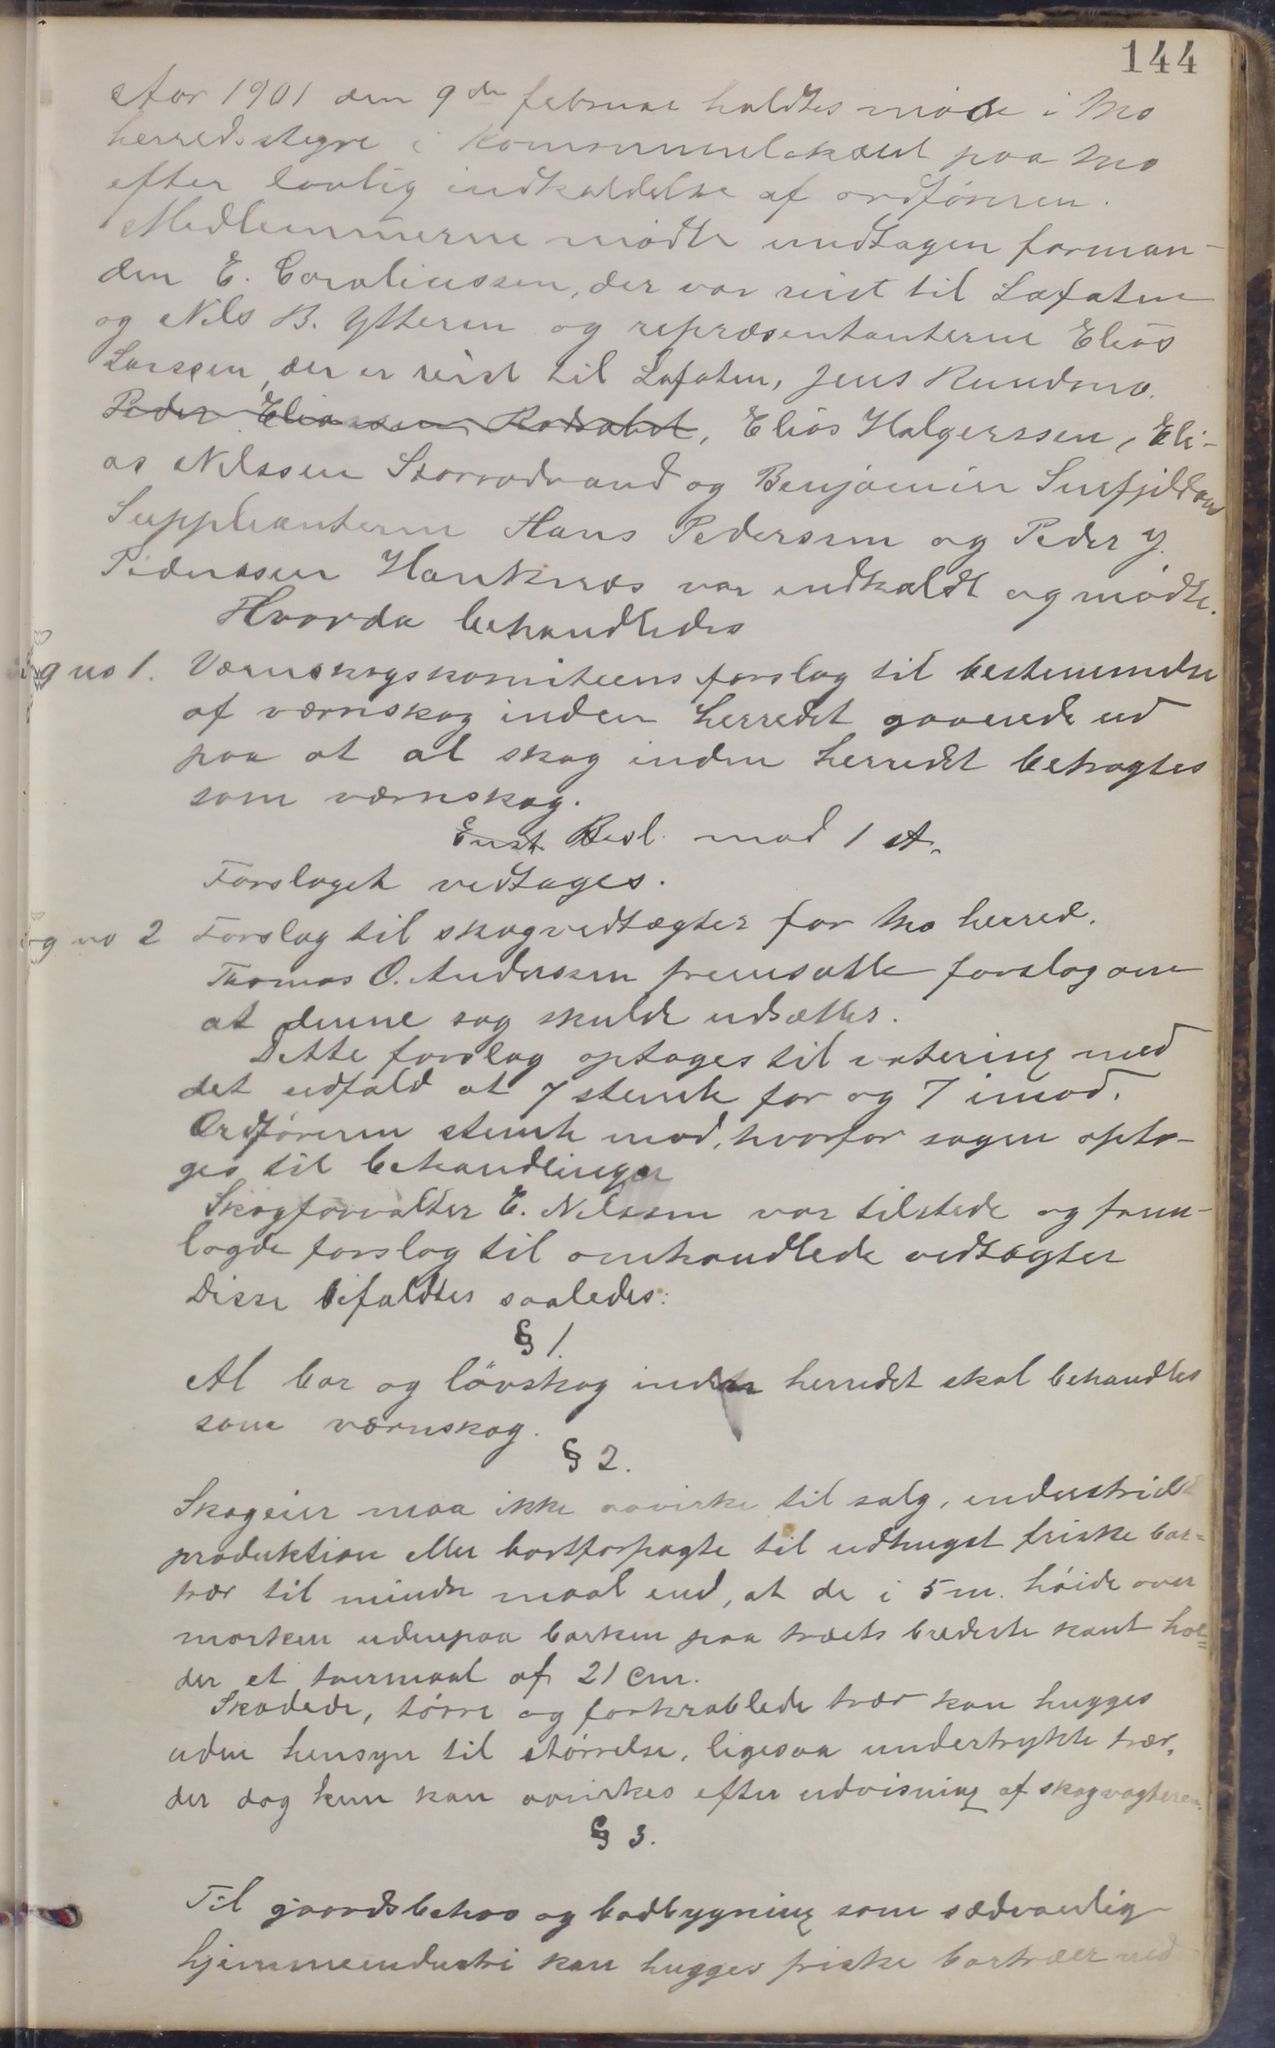 144
Aar 1901 den 9de februar holdtes møde i Mo
herredsstyre i kommunelokalet paa Mo
efter lovlig indkaldelse af ordføreren.
Medlemmerne mødte undtagen forman-
den E. Coraliussen, der var reist til Lofoten
og Nils B. Ytteren og repræsentanterne Elias
Larssen, der er reist til Lofoten, Jens
Peder Eliassen, Elias Holgerssen, Eli-
as Nilssen Storvodvand og Benjamin
Suppleanterne Hans Pederssen og Peder J.
Pederssen Hauknæs var indkaldt og mødte.
Hvorda behandledes
no 1. Værnskogskomiteens forslag til bestemmelse
af værnskog inden herredet gaaende ud
paa at al skog inden herredet betragtes
som værnskog.
Enst. Besl. mod 1 st.
Forslaget vedtages.
no 2 Forslag til skogvedtægter for Mo herred.
Thomas O. Anderssen fremsatte forslag om
at denne sag skulde udsættes.
Dette forslag optages til votering med
det udfald at 7 stemte for og 7 imod.
Ordføreren stemte mod, hvorfor sagen opto-
ges til behandling
Skogforvalter E. Nilssen var tilstede og frem-
lagde forslag til omhandlede vedtægter
Disse bifaldtes saaledes:
§ 1.
Al bar og løvskog inden herredet skal behandles
som værnskog.
§ 2.
Skogeier maa ikke avvirke til salg, industriel
produktion eller bortforpagte til udhugst friske bar-
trær til mindre maal end, at de i 5 m. høide over
marken udenpaa barken paa træets bredeste kant hol-
der et tvermaal af 21 cm.
Skadede, tørre og forkrøblede trær kan hugges
uden hensyn til størrelse, ligesaa undertrykte trær,
der dog kun kan avvirkes efter udvisning af skogvogteren.
§ 3.
Til gaardsbehov og baadbygning som sædvanlig
hjemmeindustri kan hugges friske bartræer ned